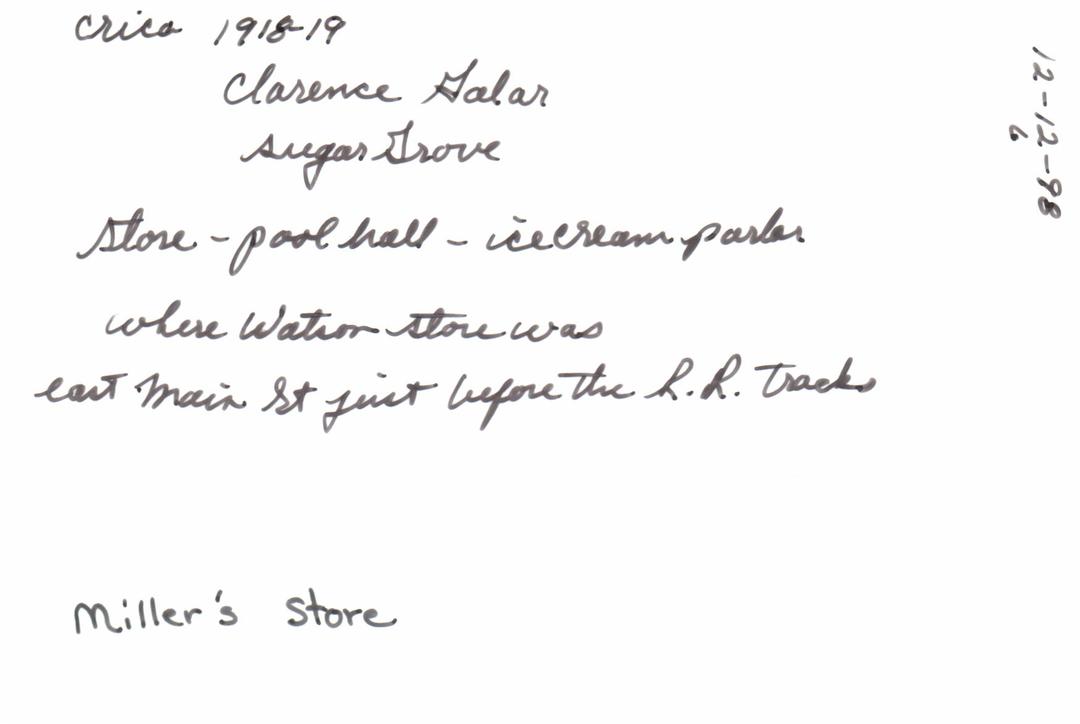 crica 1918-19
Clarence Galar
Sugar Grove
Store - pool hall - icecream parlar
where Watson store was
east Main St just before the R.R. Tracks
Miller's Store
12-12-98
6